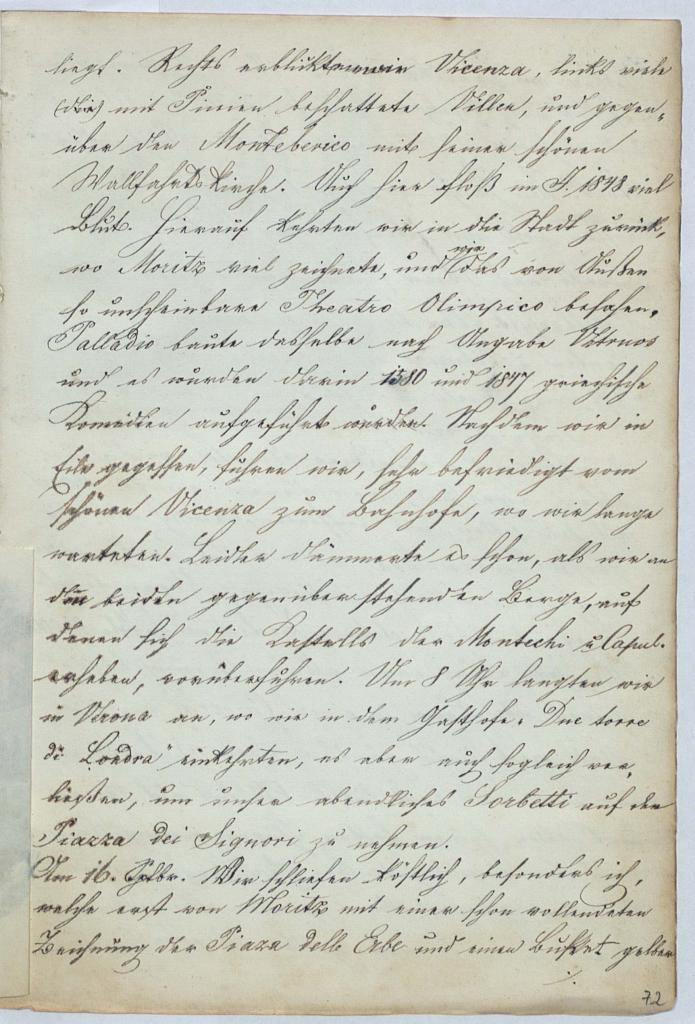 liegt. Rechts erblickten wir Vicenza, links viele
(die) mit Pinien beschattete Villen, und gegen-
über den Monteberico mit seiner schönen
Wallfahrtskirche. Auch hier floß im J. 1848 viel
Blut. Hierauf kehrten wir in die Stadt zurück,
wo Moritz viel zeichnete, und wir das von Außen
so unscheinbare Theatro Olimpico besahen.
Palladio baute dasselbe nach Angabe
und es wurden darin 1580 und 1847 griechische
Komedien aufgeführt wurden. Nachdem wir in
Eile gegessen, fuhren wir, sehr befriedigt vom
schönen Vicenza zum Bahnhofe, wo wir lange
warteten. Leider dämmerte es schon, als wir an
den beiden gegenüberstehenden Berge, auf
denen sich die Kastells der Montechi u Capul.
erheben, vorüberfuhren. Um 8 Uhr langten wir
in Verona an, wo wir in dem Gasthofe „Due torre
di Londra" einkehrten, es aber auch sogleich ver-
ließen, um unser abendliches Sorbetti auf der
Piazza dei Signori zu nehmen.
Am 16. Spbr. Wir schliefen köstlich, besonders ich,
welche erst von Moritz mit einer schon vollendeten
Zeichnung der Piaza delle Erbe und einen Bukket gelber
./.
72